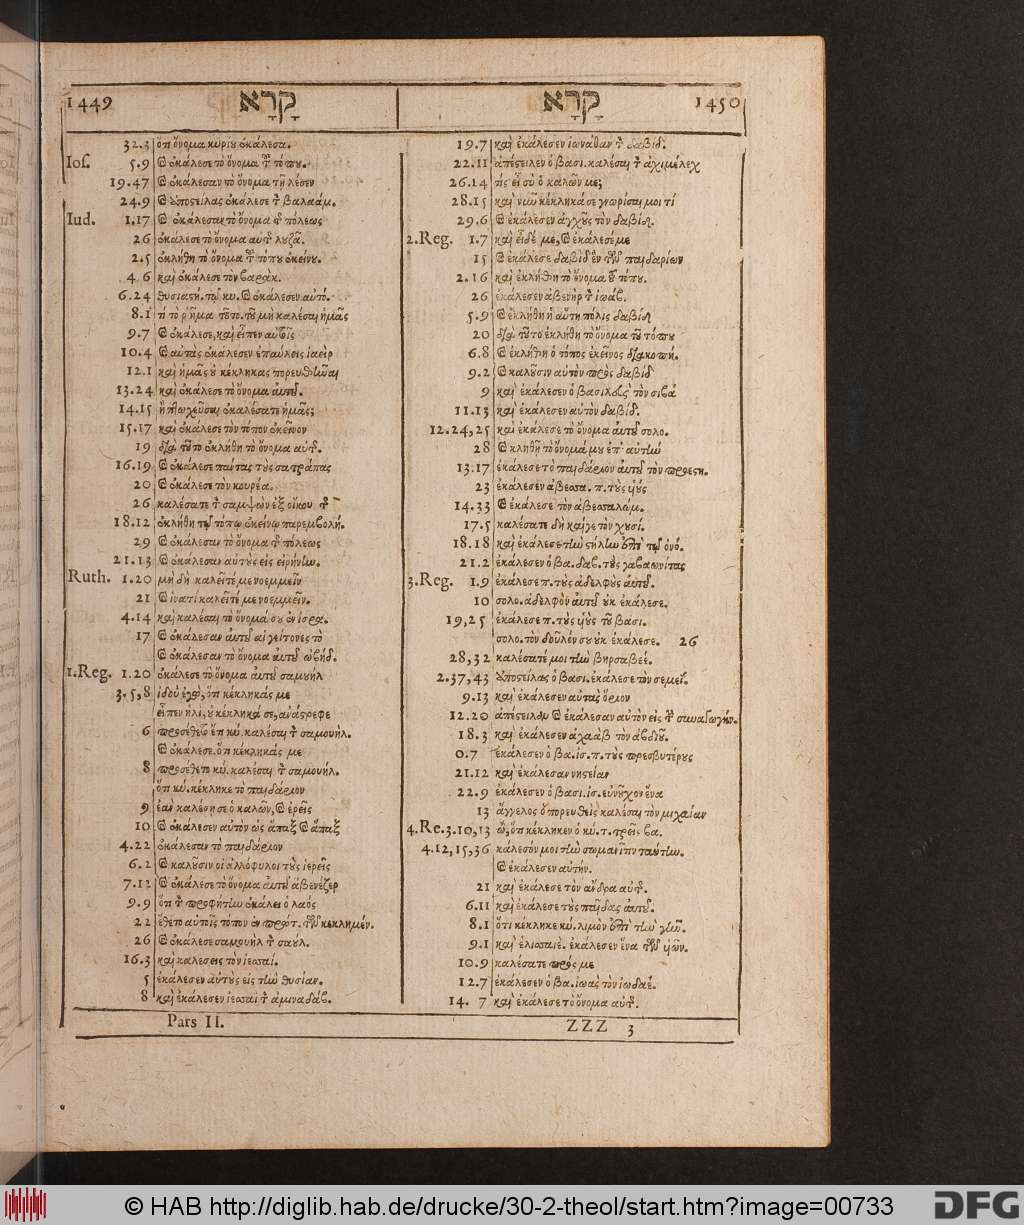 1449 קָרָא
32.3 ὅτι ὄνομα κυρίου ἐκάλεσα.
Ios. 5.9 καὶ ἐκάλεσε τὸ ὄνομα τοῦ τόπου.
19.47 καὶ ἐκάλεσαν τὸ ὄνομα τῆς λέσεν
24.9 καὶ ἀποστείλας ἐκάλεσε τὸν βαλαάμ.
Iud. 1.17 καὶ ἐκάλεσαν τὸ ὄνομα τῆς πόλεως
26 ἐκάλεσε τὸ ὄνομα αὐτῆς λυζᾶ.
2.5 ἐκλήθη τὸ ὄνομα τοῦ τόπου ἐκείνου.
4.6 καὶ ἐκάλεσε τὸν βαρὰκ.
6.24 θυσιαστή. τῷ κυ. καὶ ἐκάλεσεν αὐτό.
8.1 τί τὸ ῥῆμα τοῦτο. τοῦ μὴ καλέσαι ἡμᾶς
9.7 καὶ ἐκάλεσε, καὶ εἶπεν αὐτοῖς
10.4 καὶ αὐτὰς ἐκάλεσεν ἐπαύλεις ἰαεὶρ
12.1 καὶ ἡμᾶς οὐ κέκληκας πορευθῆναι
13.24 καὶ ἐκάλεσε τὸ ὄνομα αὐτοῦ.
14.15 ἢ πτωχεῦσαι ἐκαλέσατε ἡμᾶς;
15.17 καὶ ἐκάλεσε τὸν τόπον ἐκεῖνον
19 διὰ τοῦτο ἐκλήθη τὸ ὄνομα αὐτῆς.
16.19 καὶ ἐκάλεσε πάντας τοὺς σατράπας
20 καὶ ἐκάλεσε τὸν κουρέα.
26 καλέσατε τὸν σαμψὼν ἐξ οἴκου τῆς
18.12 ἐκλήθη τῷ τόπῳ ἐκείνῳ παρεμβολή.
29 καὶ ἐκάλεσαν τὸ ὄνομα τῆς πόλεως
21.13 καὶ ἐκάλεσαν αὐτοὺς εἰς εἰρήνην.
Ruth. 1.20 μὴ δὴ καλεῖτέ με νοεμμεῖν
21 καὶ ἱνατί καλεῖτέ με νοεμμεῖν.
4.14 καὶ καλέσαι τὸ ὄνομά σου ἐν ἰσρα.
17 καὶ ἐκάλεσαν αὐτοῦ αἱ γείτονες τὸ
καὶ ἐκάλεσαν τὸ ὄνομα αὐτοῦ ὠβήδ.
1.Reg. 1.20 ἐκάλεσε τὸ ὄνομα αὐτοῦ σαμουήλ
3.5,8 ἰδοὺ ἐγὼ, ὅτι κέκληκάς με
εἶπεν ἡλί, οὐ κέκληκά σε, ἀνάστρεφε
6 προσέθετο ἔτι κύ. καλέσαι τὸν σαμουήλ.
καὶ ἐκάλεσε. ὅτι κέκληκάς με
8 προσέθετο κύ. καλέσαι τὸν σαμουήλ.
ὅτι κύ. κέκληκε τὸ παιδάριον
9 ἐὰν καλέσῃ σε ὁ καλῶν, καὶ ἐρεῖς
10 καὶ ἐκάλεσεν αὐτὸν ὡς ἅπαξ καὶ ἅπαξ
4.22 ἐκάλεσαν τὸ παιδάριον
6.2 καὶ καλοῦσιν οἱ ἀλλόφυλοι τοὺς ἱερεῖς
7.12 καὶ ἐκάλεσε τὸ ὄνομα αὐτοῦ ἀβενέζερ
9.9 ὅτι τὸν προφήτην ἐκάλει ὁ λαὸς
22 ἔθετο αὐτοῖς τόπον ἐν πρώτ. τῶν κεκλημέν.
26 καὶ ἐκάλεσε σαμουὴλ τὸν σαούλ.
16.3 καὶ καλέσεις τὸν ἰεσσαί.
5 ἐκάλεσεν αὐτοὺς εἰς τὴν θυσίαν.
8 καὶ ἐκάλεσεν ἰεσσαὶ τὸν ἀμιναδάβ.
Pars II.
קָרָא 1450
19.7 καὶ ἐκάλεσεν ἰωνάθαν τὸν δαβίδ.
22.11 ἀπέστειλεν ὁ βασι. καλέσαι τὸν ἀχιμέλεχ
26.14 τίς εἶ σὺ ὁ καλῶν με;
28.15 καὶ νῦν κέκληκά σε γνωρίσαι μοι τί
29.6 καὶ ἐκάλεσεν ἀγχοῦς τὸν δαβίδ.
2.Reg. 1.7 καὶ εἶδέ με, καὶ ἐκάλεσέ με
15 καὶ ἐκάλεσε δαβὶδ ἓν τῶν παιδαρίων
2.16 καὶ ἐκλήθη τὸ ὄνομα τοῦ τόπου.
26 ἐκάλεσεν ἀβενὴρ τὸν ἰωάβ.
5.9 καὶ ἐκλήθη ἡ αὕτη πόλις δαβίδ
20 διὰ τοῦτο ἐκλήθη τὸ ὄνομα τοῦ τόπου
6.8 καὶ ἐκλήθη ὁ τόπος ἐκεῖνος διακοπή.
9.2 καὶ καλοῦσιν αὐτὸν πρὸς δαβίδ
9 καὶ ἐκάλεσεν ὁ βασιλεὺς τὸν σιβά
11.13 καὶ ἐκάλεσεν αὐτὸν δαβίδ.
12.24,25 καὶ ἐκάλεσε τὸ ὄνομα αὐτοῦ σολο.
28 καὶ κληθῇ τὸ ὄνομά μου ἐπ' αὐτήν
13.17 ἐκάλεσε τὸ παιδάριον αὐτοῦ τὸν προεστη.
23 ἐκάλεσεν ἀβεσσα. π. τοὺς υἱοὺς
14.33 καὶ ἐκάλεσε τὸν ἀβεσσαλώμ.
17.5 καλέσατε δὴ καίγε τὸν χουσί.
18.18 καὶ ἐκάλεσε τὴν στήλην ἐπὶ τῷ ὀνό.
21.2 ἐκάλεσεν ὁ βα. δαβ. τοὺς γαβαωνίτας
3.Reg. 1.9 ἐκάλεσε π. τοὺς ἀδελφοὺς αὐτοῦ.
10 σολο. ἀδελφὸν αὐτοῦ οὐκ ἐκάλεσε.
19,25 ἐκάλεσε π. τοὺς υἱοὺς τοῦ βασι.
σολο. τὸν δοῦλόν σου οὐκ ἐκάλεσε. 26
28,32 καλέσατέ μοι τὴν βηρσαβεέ.
2.37,43 ἀποστείλας ὁ βασι. ἐκάλεσε τὸν σεμεΐ.
9.13 καὶ ἐκάλεσεν αὐτὰς ὅριον
12.20 ἀπέστειλαν καὶ ἐκάλεσαν αὐτὸν εἰς τὴν συναγωγήν.
18.3 καὶ ἐκάλεσεν ἀχαὰβ τὸν ἀβδιοῦ.
0.7 ἐκάλεσεν ὁ βα. ἰσ. π. τοὺς πρεσβυτέρους
21.12 καὶ ἐκάλεσαν νηστείαν
22.9 ἐκάλεσεν ὁ βασι. ἰσ. εὐνοῦχον ἕνα
13 ἄγγελος ὁ πορευθεὶς καλέσαι τὸν μιχαίαν
4.Re.3.10,13 ὦ, ὅτι κέκληκεν ὁ κύ. τ. τρεῖς βα.
4.12,15,36 κάλεσόν μοι τὴν σωμανῖτιν ταύτην.
καὶ ἐκάλεσεν αὐτήν.
21 καὶ ἐκάλεσε τὸν ἄνδρα αὐτῆς.
6.11 καὶ ἐκάλεσε τοὺς παῖδας αὐτοῦ.
8.1 ὅτι κέκληκε κύ. λιμὸν ἐπὶ τὴν γῆν.
9.1 καὶ ἐλισσαιὲ. ἐκάλεσεν ἕνα τῶν υἱῶν.
10.9 καλέσατε πρός με
12.7 ἐκάλεσεν ὁ βα. ἰωὰς τὸν ἰωδαέ.
14. 7 καὶ ἐκάλεσε τὸ ὄνομα αὐτῆς.
ZZZ 3
© HAB http://diglib.hab.de/drucke/30-2-theol/start.htm?image=00733
DFG